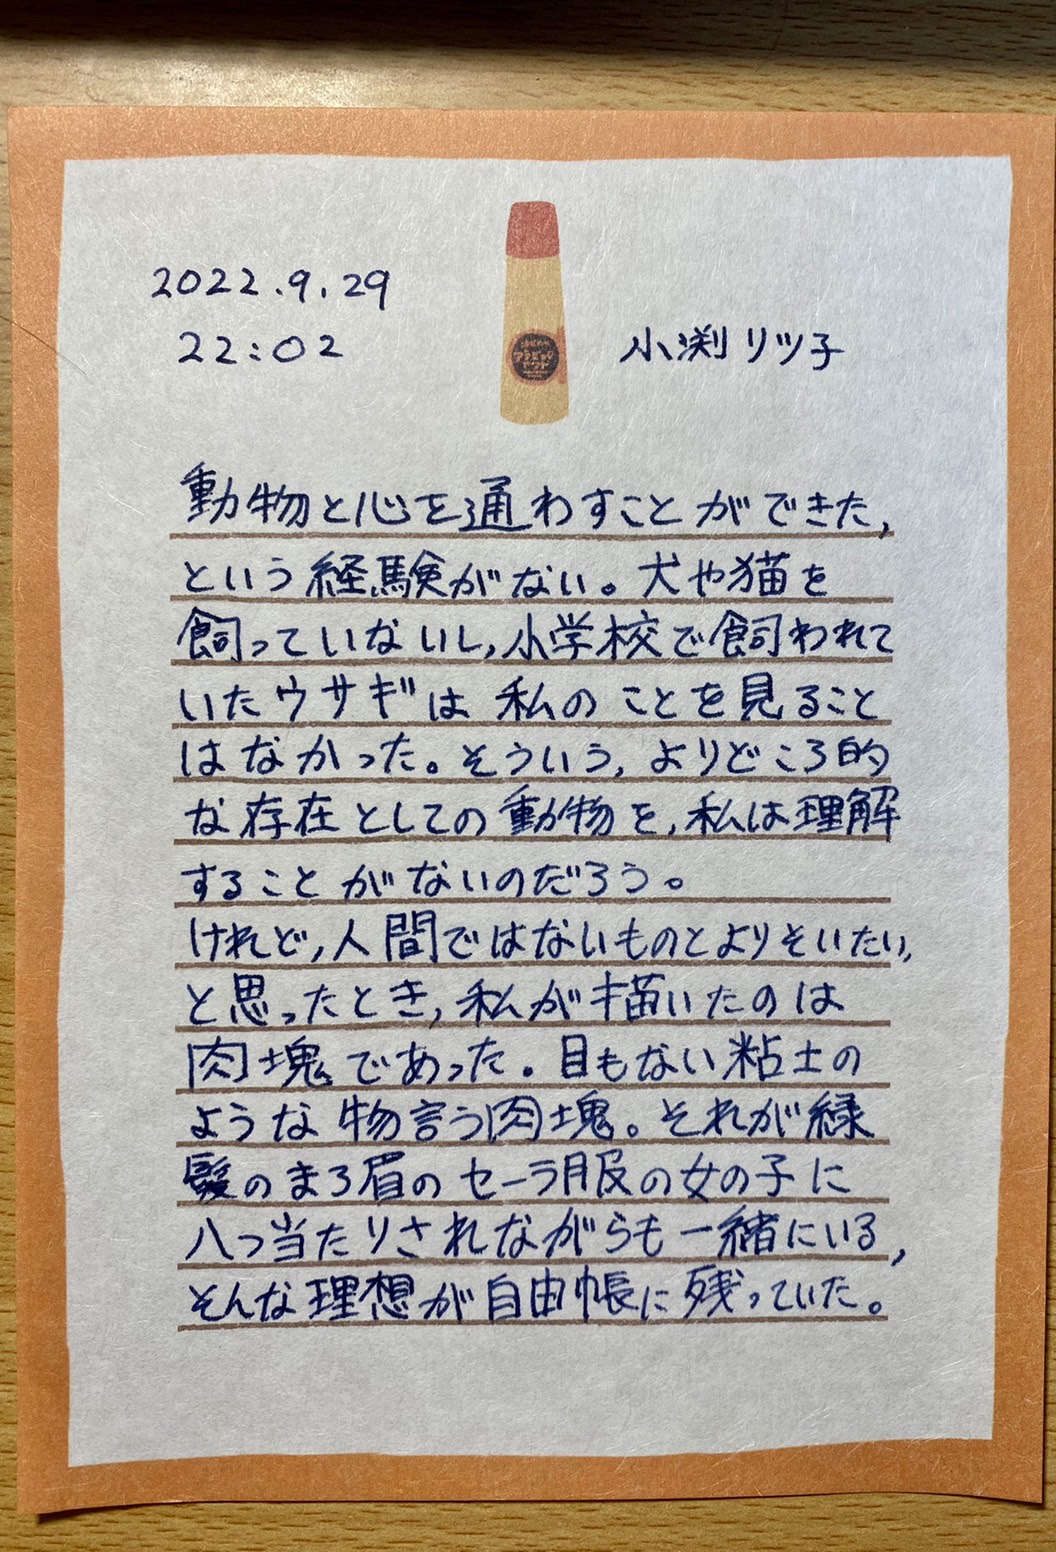 2022.9.29
22:02
小渕リツ子
アラビックヤマト
動物と心を通わすことができた,
という経験がない。犬や猫を
飼っていないし,小学校で飼われて
いたウサギは私のことを見ること
はなかった。そういう,よりどころ的
な存在としての動物を,私は理解
することがないのだろう。
けれど,人間ではないものとよりそいたい,
と思ったとき,私が描いたのは
肉塊であった。目もない粘土の
ような物言う肉塊。それが緑
髪のまろ眉のセーラー服の女の子に
八つ当たりされながらも一緒にいる,
そんな理想が自由帳に残っていた。